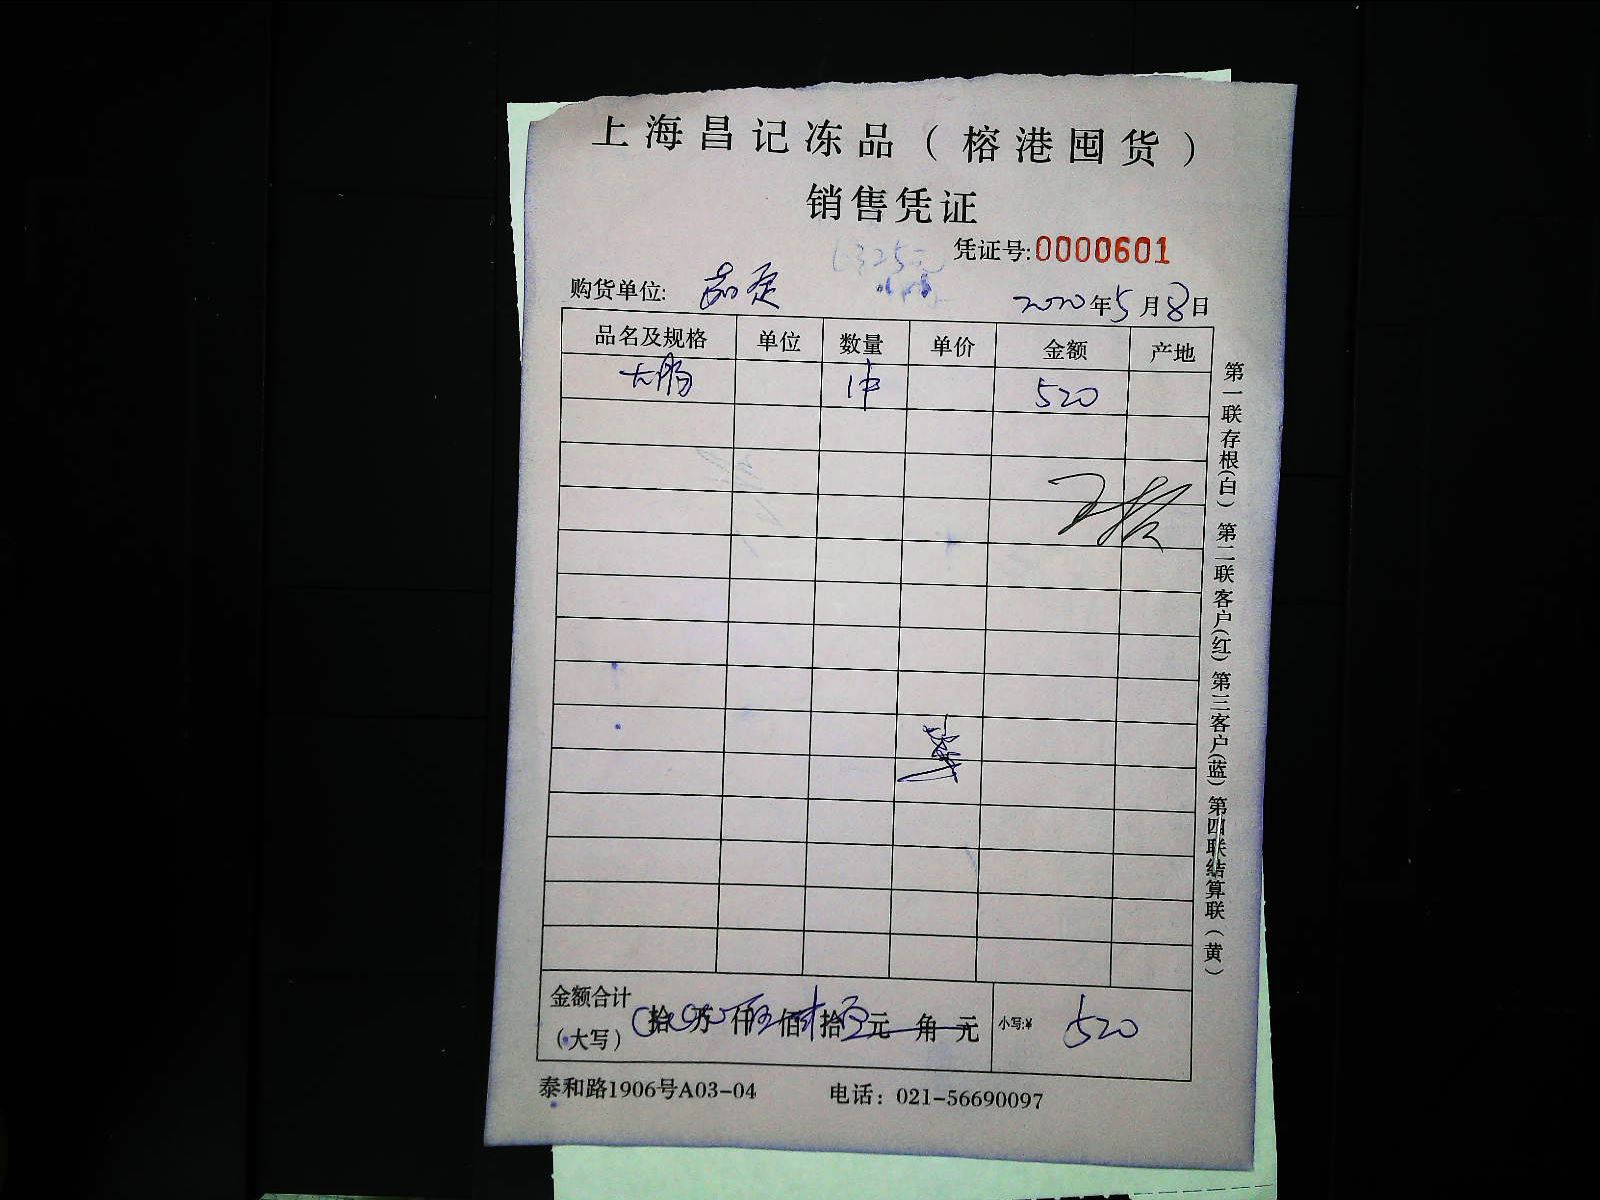 上海昌记冻品（榕港囤货）
销售凭证
凭证号:0000601
购货单位:
2020年5月8日
品名及规格 单位 数量 单价 金额 产地
大肠 1件 520
金额合计
（大写） 拾 万 仟伍佰贰拾零元 角 元 小写:¥ 520
泰和路1906号A03-04 电话：021-56690097
第一联存根(白) 第二联客户(红) 第三客户(蓝) 第四联结算联(黄)